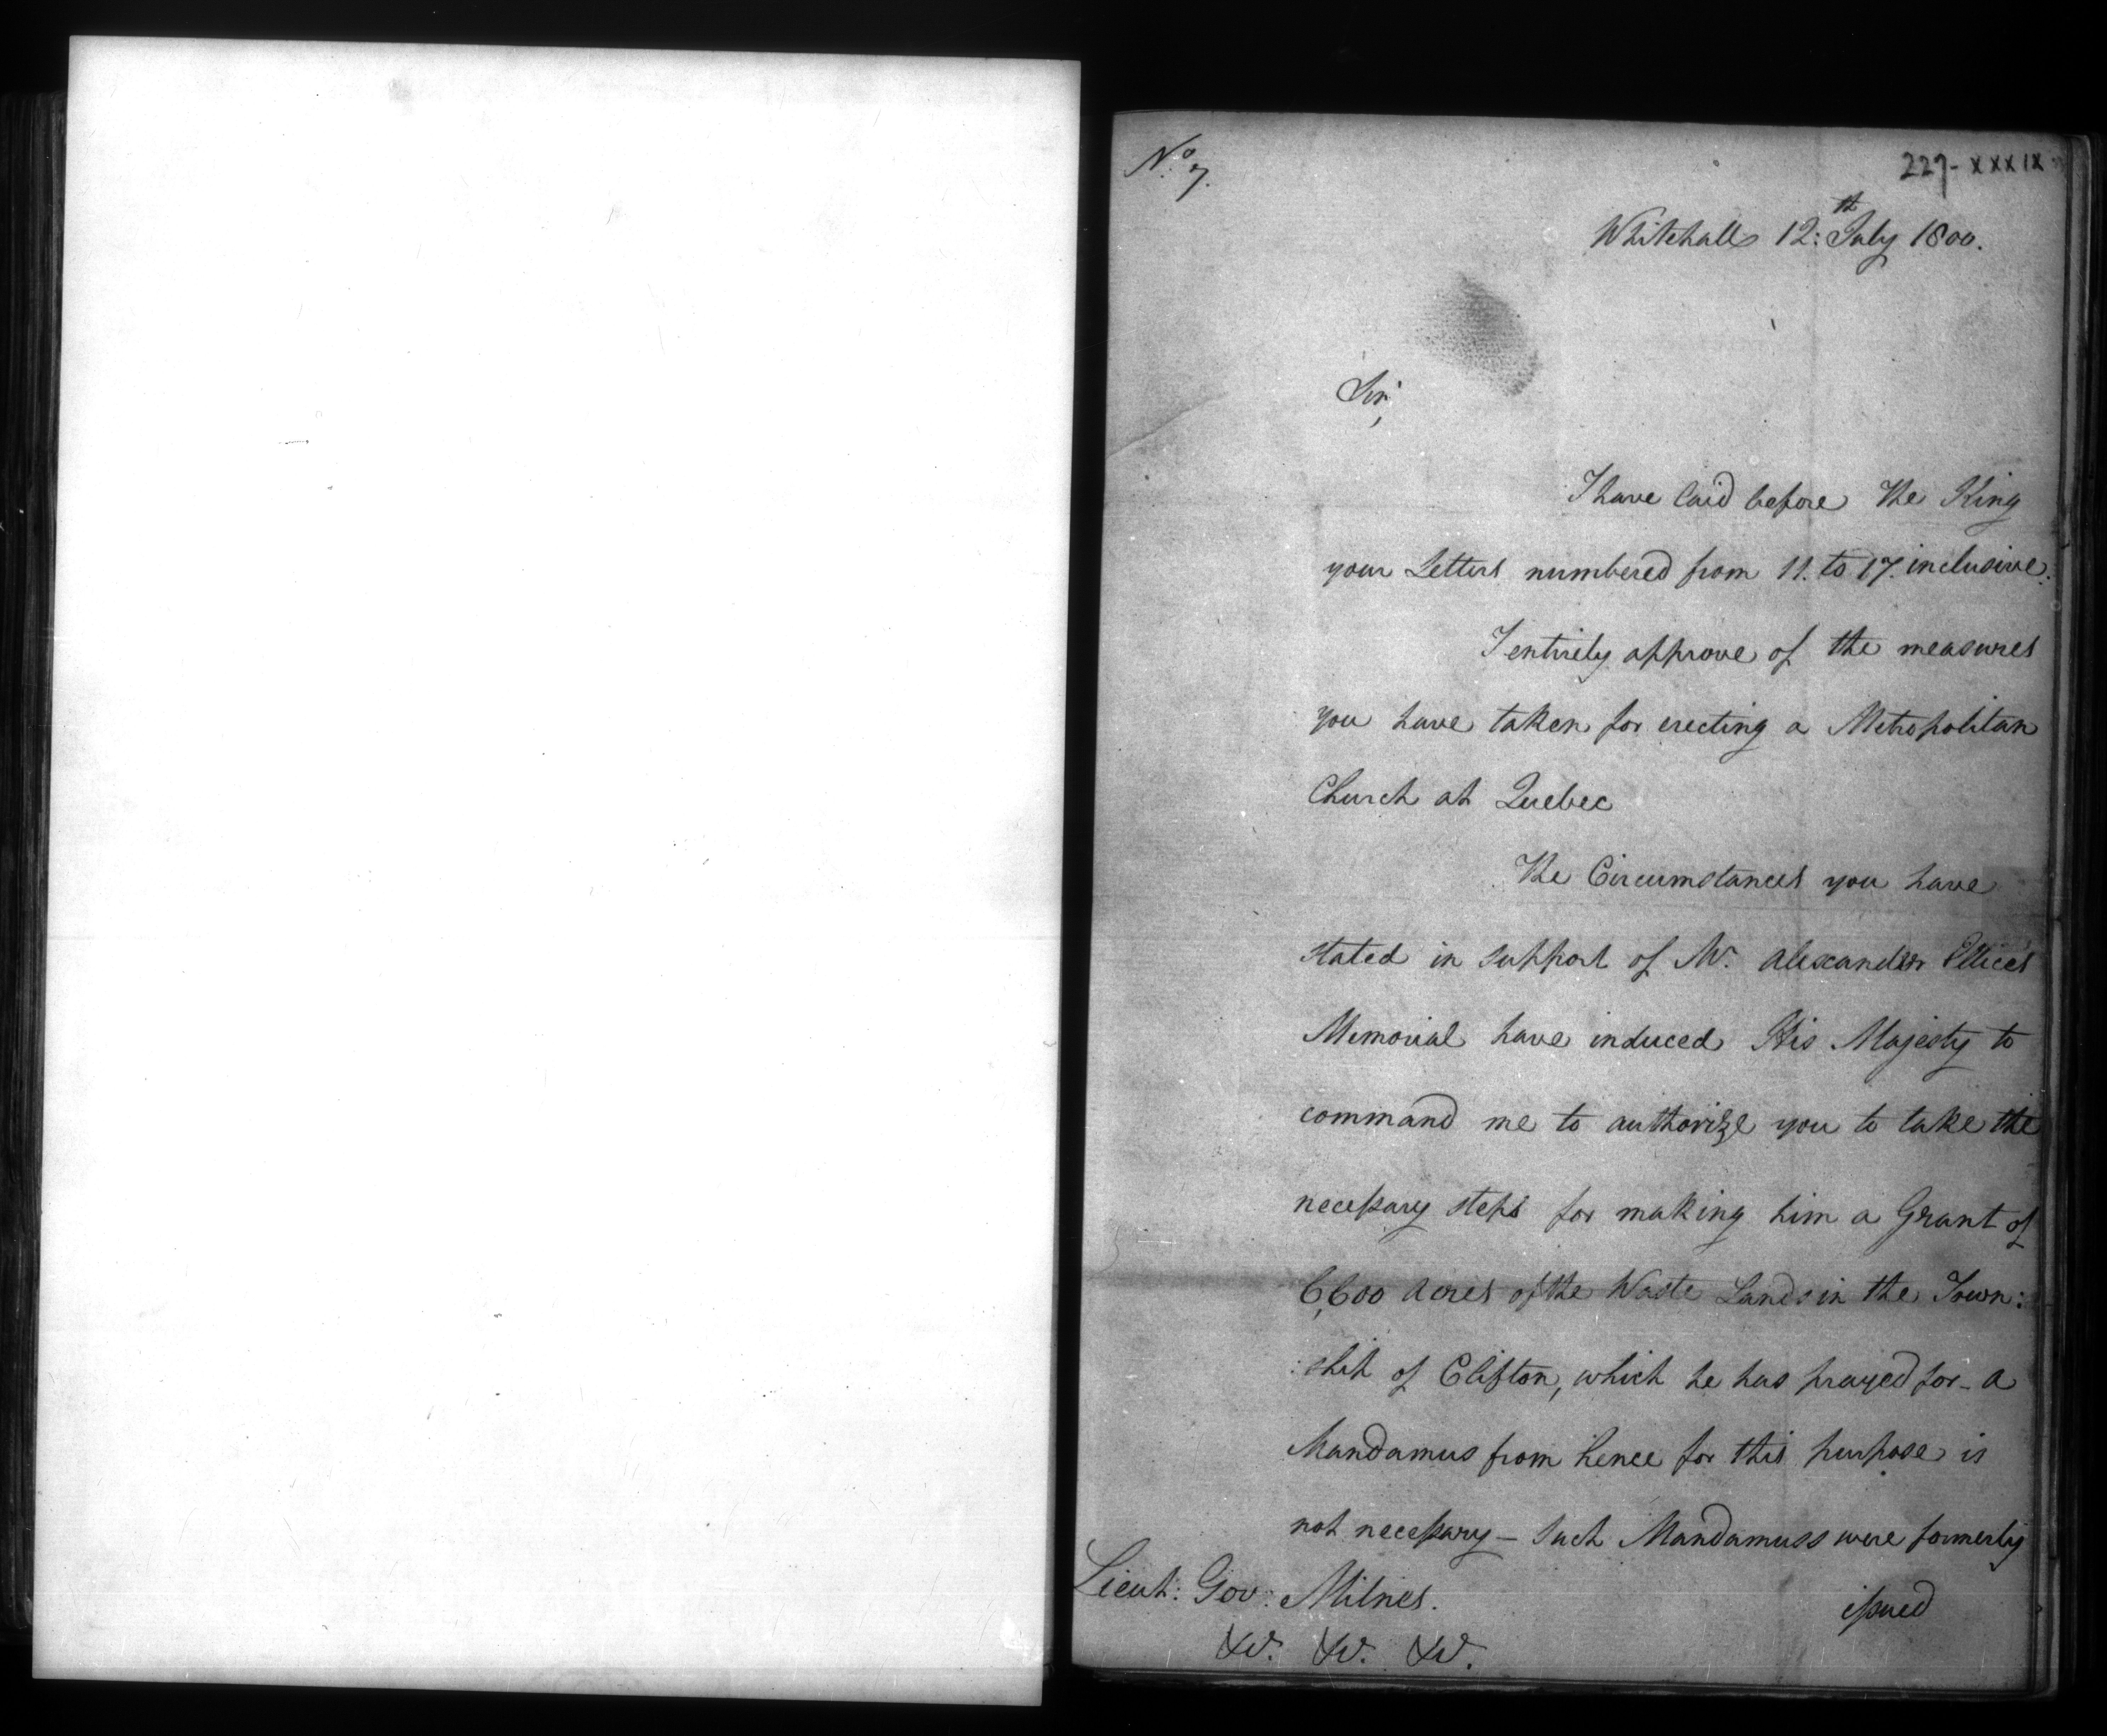 No. 7.
227-XXXIX
Whitehall 12:th July 1800.
Sir,
I have laid before The King
your Letters numbered from 11. to 17. inclusive.
I entirely approve of the measures
you have taken for erecting a Metropolitan
Church at Quebec
The Circumstances you have
stated in support of Mr. Alexander Ellice's
Memorial have induced His Majesty to
command me to authorize you to take the
necessary steps for making him a Grant of
6,600 Acres of the Waste Lands in the Town:
:ship of Clifton, which he has prayed for - a
Mandamus from hence for this purpose is
not necessary - Such Mandamuss were formerly
issued
Lieut: Gov: Milnes.
&c. &c. &c.